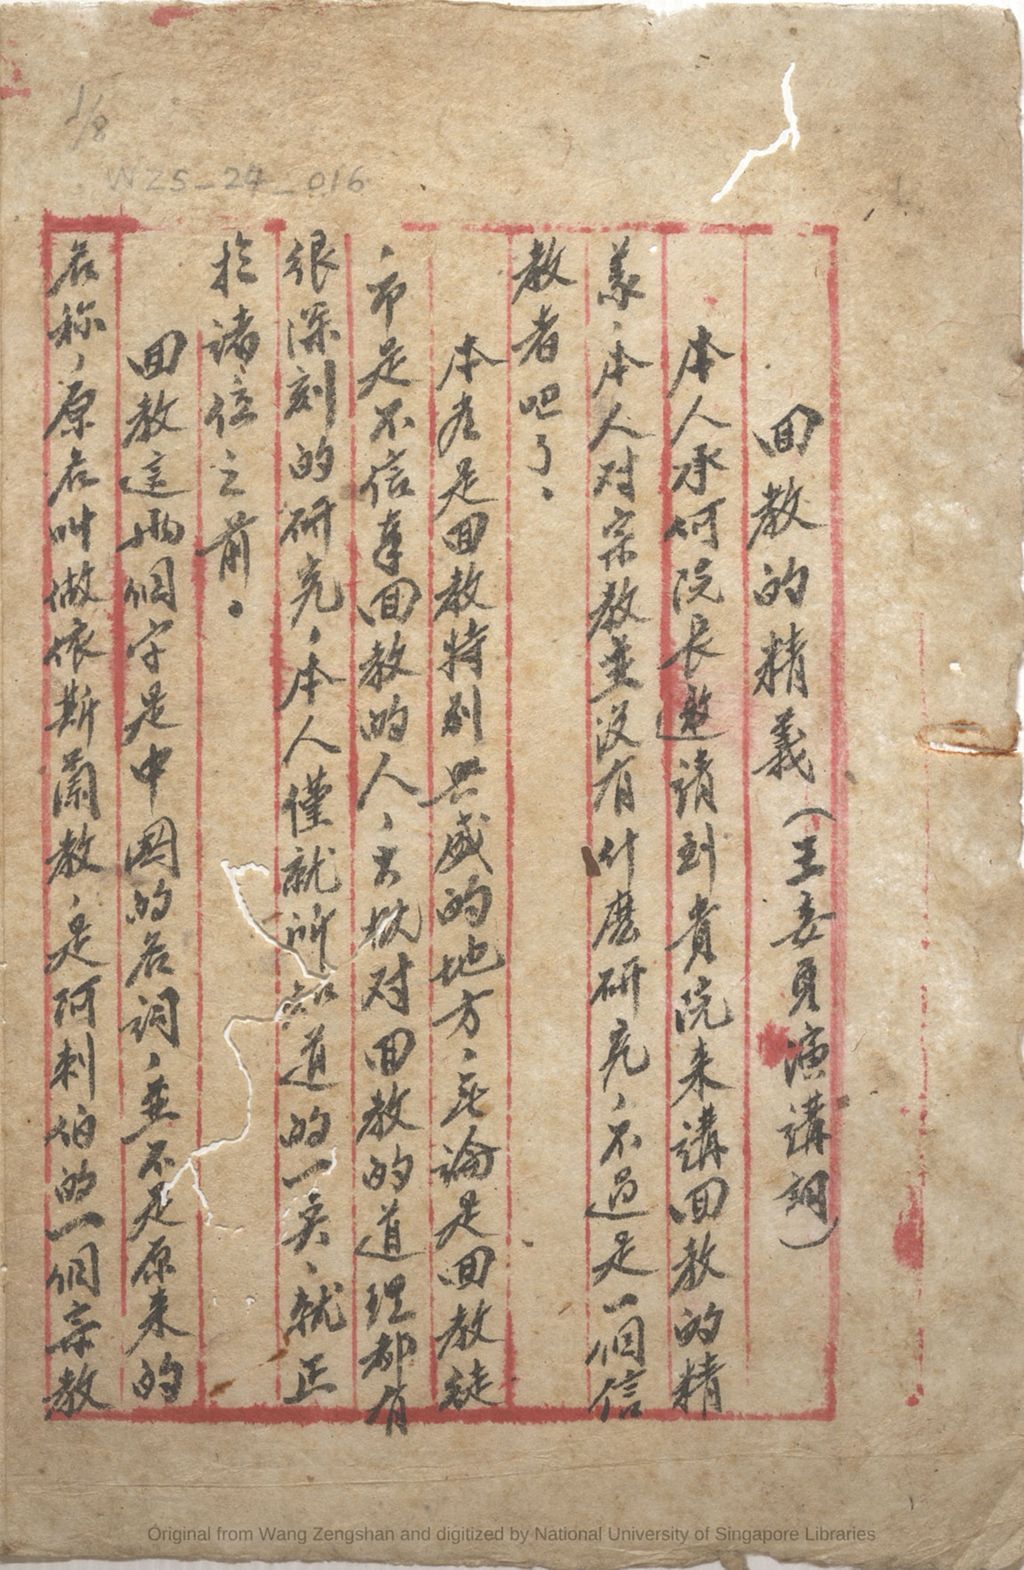 1/8
WZS_24_016
回教的精義(王委員演講詞)
本人承何院长邀请到貴院来講回教的精
義,本人对宗教並没有什麽研究,不过是一個信
教者吧了。
本省是回教特别兴盛的地方,无論是回教徒
,而是不信奉回教的人,大概对回教的道理都有
很深刻的研究,本人僅就所知道的一点,就正
於诸位之前。
回教這两個字是中國的名詞,並不是原来的
名称,原名叫做依斯蘭教,是阿刺伯的一個宗教
Original from Wang Zengshan and digitized by National University of Singapore Libraries